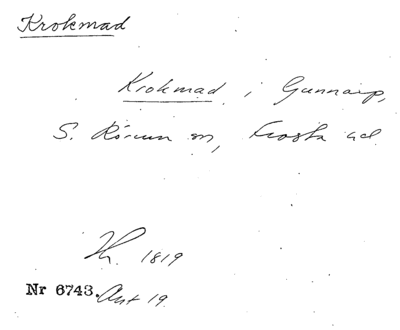 Krokmad
Krokmad i Gunnarp,
S. Rörum sn, Frosta hd
1819
Nr 6743. Ant 19.